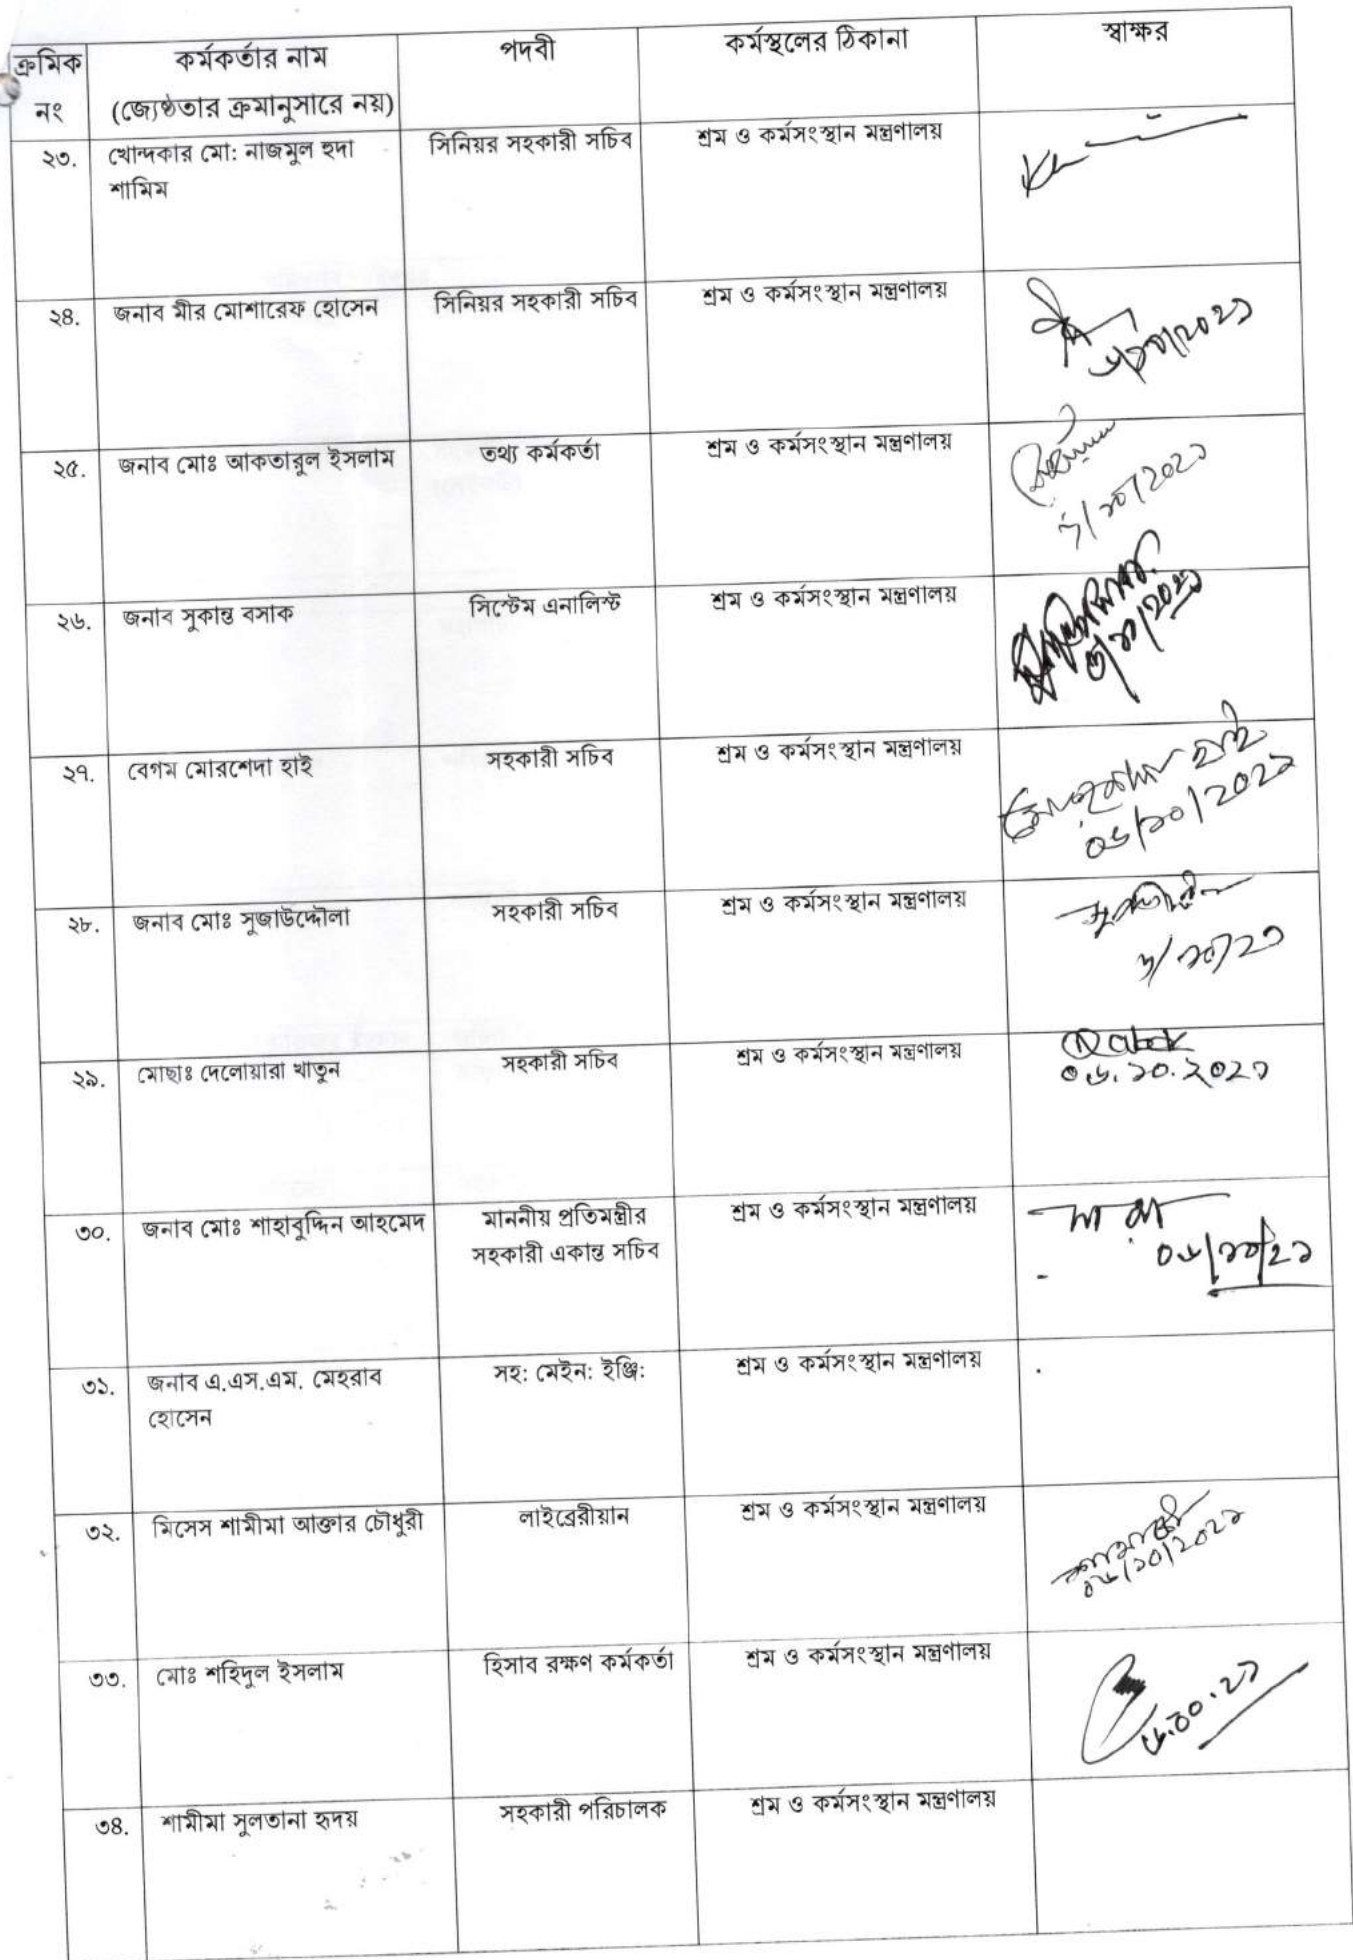 ক্রমিক নং	কর্মকর্তার নাম (জ্যেষ্ঠতার ক্রমানুসারে নয়)	পদবী	কর্মস্থলের ঠিকানা	স্বাক্ষর
২৩.	খোন্দকার মো: নাজমুল হুদা শামিম	সিনিয়র সহকারী সচিব	শ্রম ও কর্মসংস্থান মন্ত্রণালয়
২৪.	জনাব মীর মোশারেফ হোসেন	সিনিয়র সহকারী সচিব	শ্রম ও কর্মসংস্থান মন্ত্রণালয়	৬/১০/২০২১
২৫.	জনাব মোঃ আকতারুল ইসলাম	তথ্য কর্মকর্তা	শ্রম ও কর্মসংস্থান মন্ত্রণালয়	৬/১০/২০২১
২৬.	জনাব সুকান্ত বসাক	সিস্টেম এনালিস্ট	শ্রম ও কর্মসংস্থান মন্ত্রণালয়	৬/১০/২০২১
২৭.	বেগম মোরশেদা হাই	সহকারী সচিব	শ্রম ও কর্মসংস্থান মন্ত্রণালয়	মোরশেদা হাই ০৬/১০/২০২১
২৮.	জনাব মোঃ সুজাউদ্দৌলা	সহকারী সচিব	শ্রম ও কর্মসংস্থান মন্ত্রণালয়	৬/১০/২১
২৯.	মোছাঃ দেলোয়ারা খাতুন	সহকারী সচিব	শ্রম ও কর্মসংস্থান মন্ত্রণালয়	০৬.১০.২০২১
৩০.	জনাব মোঃ শাহাবুদ্দিন আহমেদ	মাননীয় প্রতিমন্ত্রীর সহকারী একান্ত সচিব	শ্রম ও কর্মসংস্থান মন্ত্রণালয়	০৬/১০/২১
৩১.	জনাব এ.এস.এম. মেহরাব হোসেন	সহ: মেইন: ইঞ্জি:	শ্রম ও কর্মসংস্থান মন্ত্রণালয়
৩২.	মিসেস শামীমা আক্তার চৌধুরী	লাইব্রেরীয়ান	শ্রম ও কর্মসংস্থান মন্ত্রণালয়	০৬/১০/২০২১
৩৩.	মোঃ শহিদুল ইসলাম	হিসাব রক্ষণ কর্মকর্তা	শ্রম ও কর্মসংস্থান মন্ত্রণালয়	৬.১০.২১
৩৪.	শামীমা সুলতানা হৃদয়	সহকারী পরিচালক	শ্রম ও কর্মসংস্থান মন্ত্রণালয়